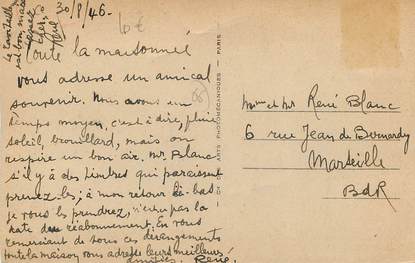 30/8/46.
6€
Toute la maisonnée
vous adresse un amical
souvenir. Nous avons un
temps moyen, c'est à dire, pluie
soleil, brouillard, mais on
respire un bon air. Mr Blanc
s'il y a des timbres qui paraissent
prenez-les; à mon retour là-bas
je vous les prendrez, n'ayez pas la
hate du réabonnement. En vous
remerciant de tous ces dérangements
toute la maison vous adresse leurs meilleures
amitiés. René.
est bon, mais
ARTS PHOTOMÉCANIQUES
Mme et Mr René Blanc
6 rue Jean de Bernardy
Marseille
BdR